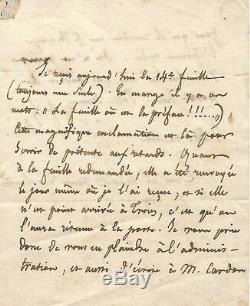 Je reçois aujourd'hui la 14e feuille
(toujours une seule). En marge il y a ces
mots: "La feuille où est la préface!!!...,,)
Cette magnifique exclamation est là pour
servir de prétexte aux retards. Quant
à la feuille redemandée, elle a été renvoyée
le jour même où je l'ai reçue, et si elle
n'est point arrivée à , c'est qu'on
l'aura retenue à la poste. Je vous prie
donc de vous en plaindre à l'adminis-
tration, et aussi d'écrire à M. Cardon
ebay